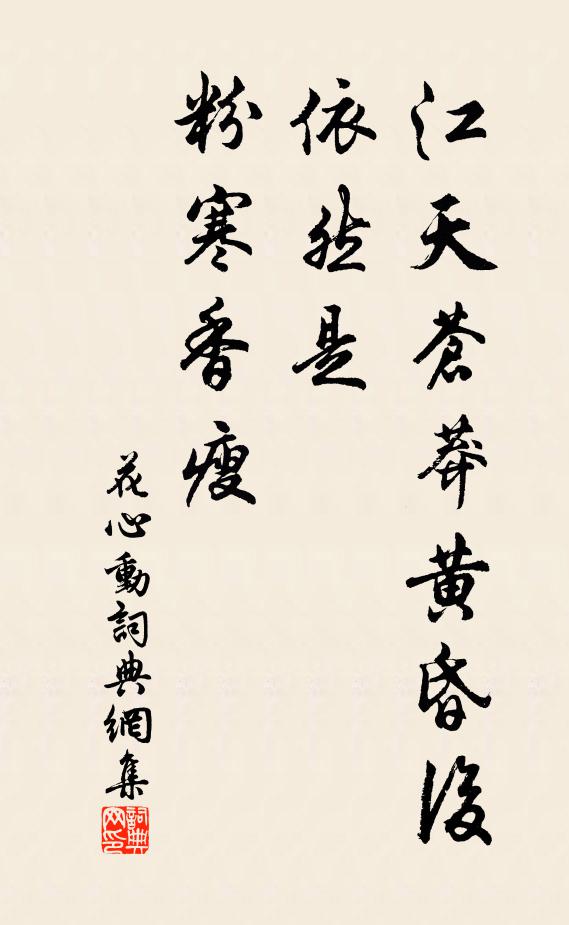 江天蒼莽黃昏後
依然是
粉寒香瘦
花心動詞典網集
詞典網印